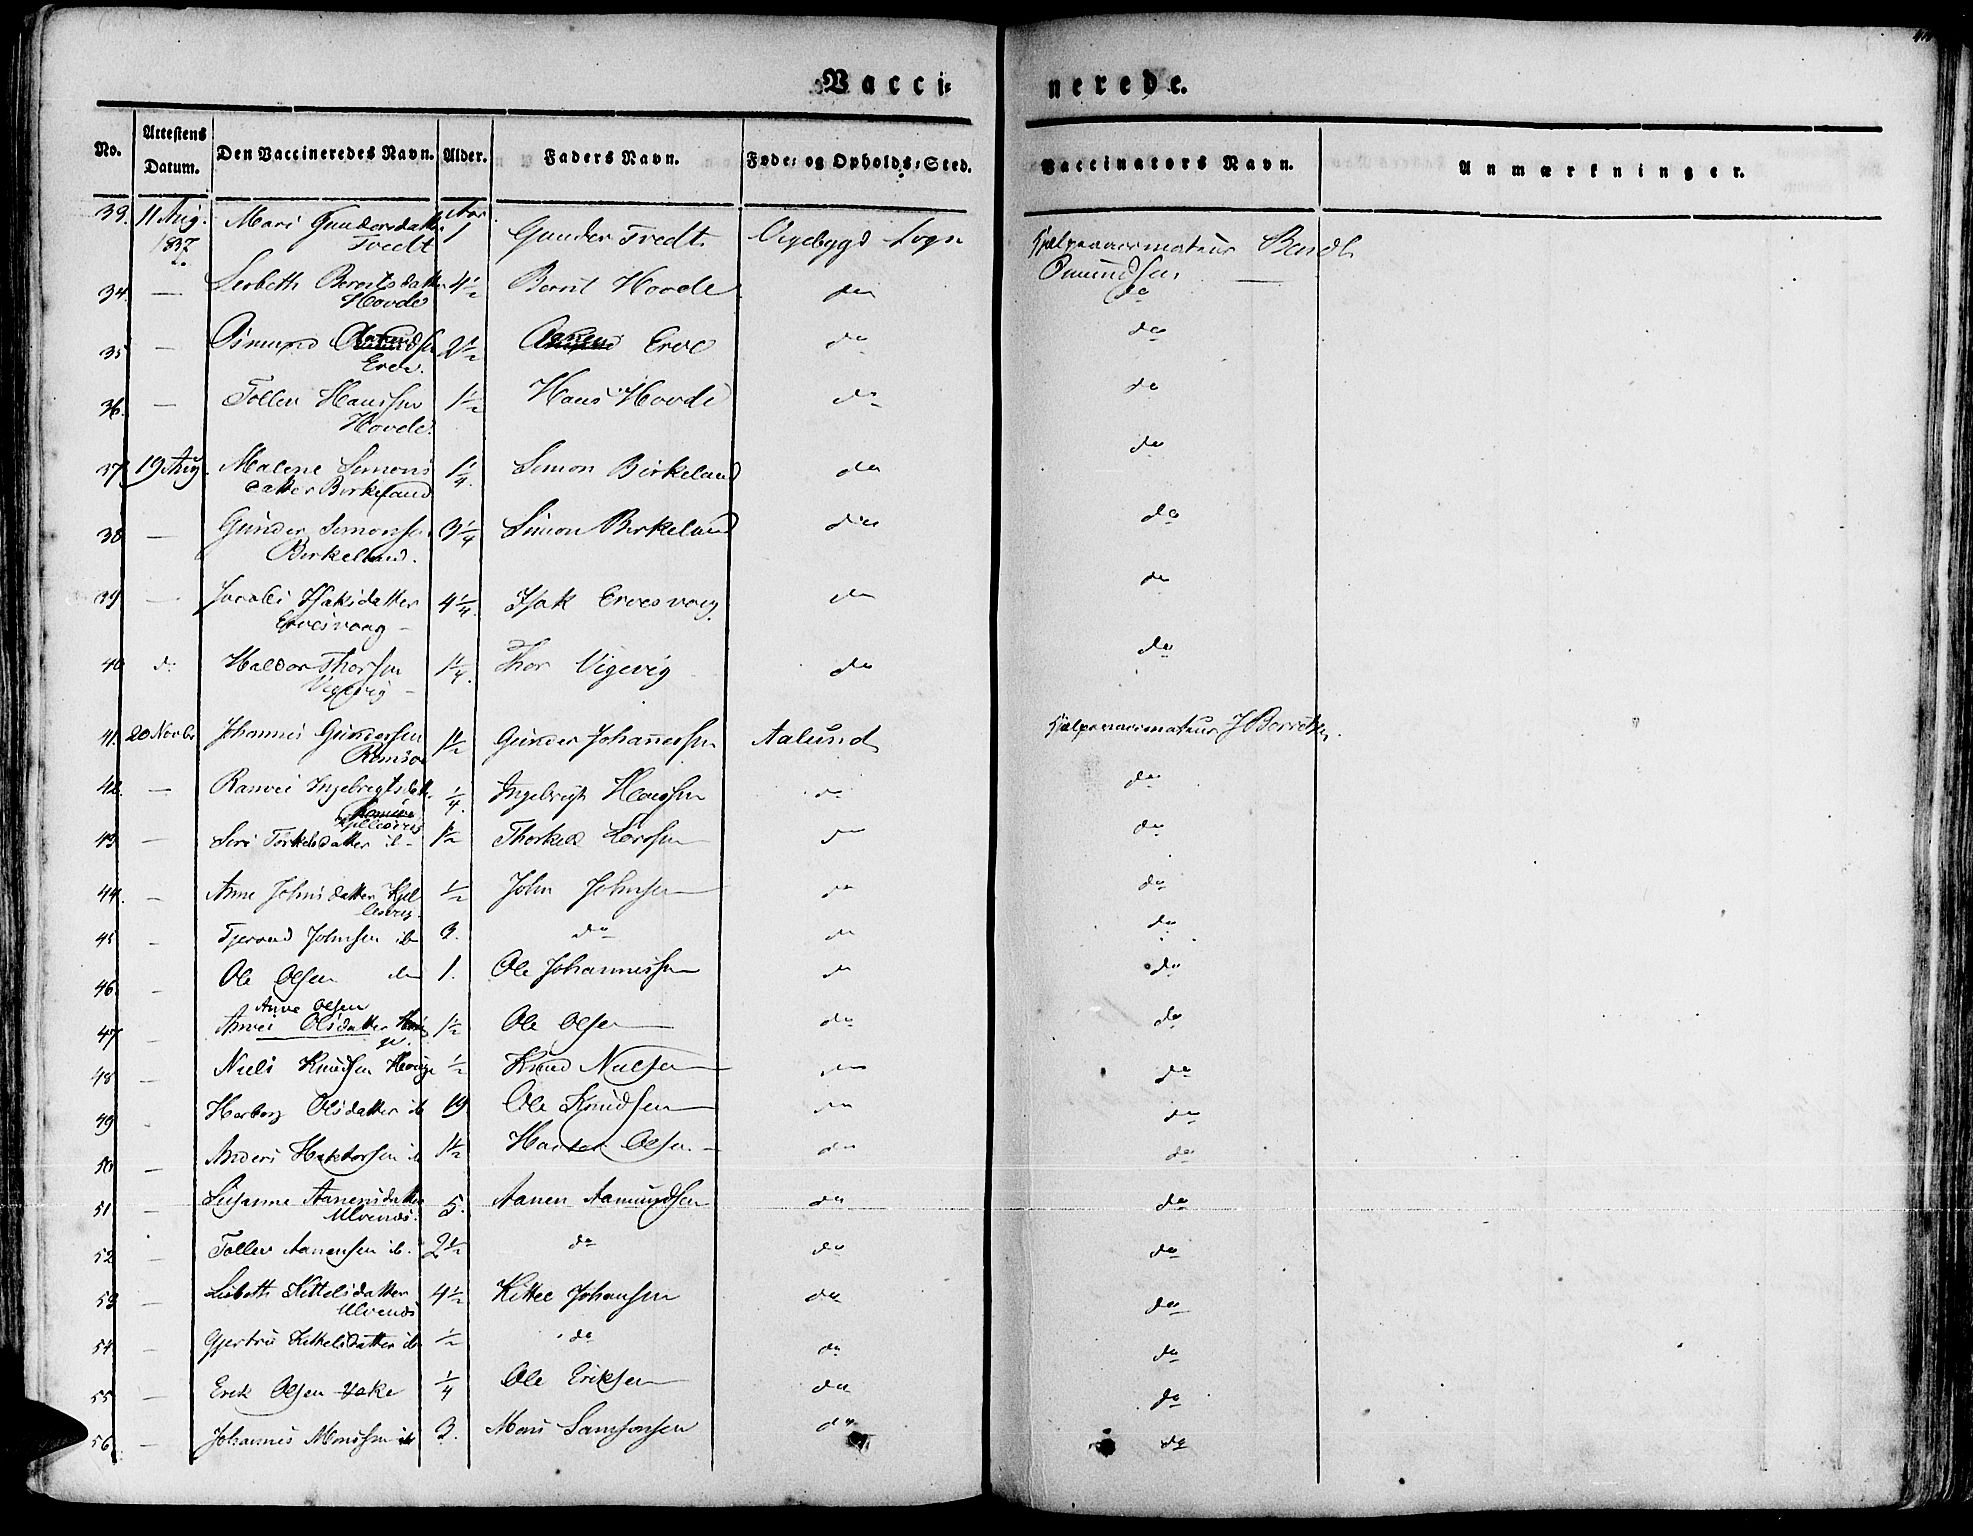 Vacci- nerede.
No. Attestens Datum. Den Vaccineredes Navn. Alder. Faders Navn. Føde- og Opholds-Sted. Vaccinators Navn. Anmærkninger.
33. 11 Aug. 1837 Mari Gundersdatter Tredt 1 Gunder Tredt Vigebygd Sogn Hjælpevaccinateur Omundsen
34. — Lisbeth Berntsdatter Hovde 4½ Bernt Hovde do do
35 — Osmund Erve 2½ Erve do do
36. — Tollev Hansen Hovde 1½ Hans Hovde do do
37 19 Aug. Malene Simonsdatter Birkeland 1¼ Simon Birkeland do do
38 — Gunder Simonsen Birkeland 3¼ Simon Birkeland do do
39 — Isaksdatter Ervesvaag 4¼ Isak Ervesvaag do do
40 d: Haldor Thorsen Vigevig 1¼ Thor Vigevig do do
41. 20 Novbr Johannes Gundersen 1½ Gunder Johannessen Aalund Hjælpevaccinateur J Berentsen
42. — Ranvei Ingebrigtsdatter ¼ Ingebrigt Hansen do do
43. — Siri Torkelsdatter ib 1½ Thorkeld Larssen do do
44. — Anne Johnsdatter ½ John Johnsen do do
45 — Tjerand Johnsen ib 3. do do do
46. — Ole Olsen do 1. Ole Johannessen do do
Anne Olsen
47 — Anvei Olsdatter 1½ Ole Olsen do do
48 — Niels Knudsen ½ Knud Nielsen do do
49 Herborg Olsdatter ib 19 Ole Knudsen do do
50 — Anders Haktorsen ib 1½ Olsen do do
51 — Susanne Aanensdatter Ulvenæs. 5. Aanen Aamundsen do do
52 — Tollev Aanensen ib. 2½ do do do
53 — Lisbeth Kittelsdatter Ulvenæs 4½ Kittel Johansen do do
54 — Gjertru Kittelsdatter ib ½ do do do
55 — Erik Olsen ¼ Ole Eriksen do do
56 — Johannes Monsen ib 3. Mons Samsonsen do do